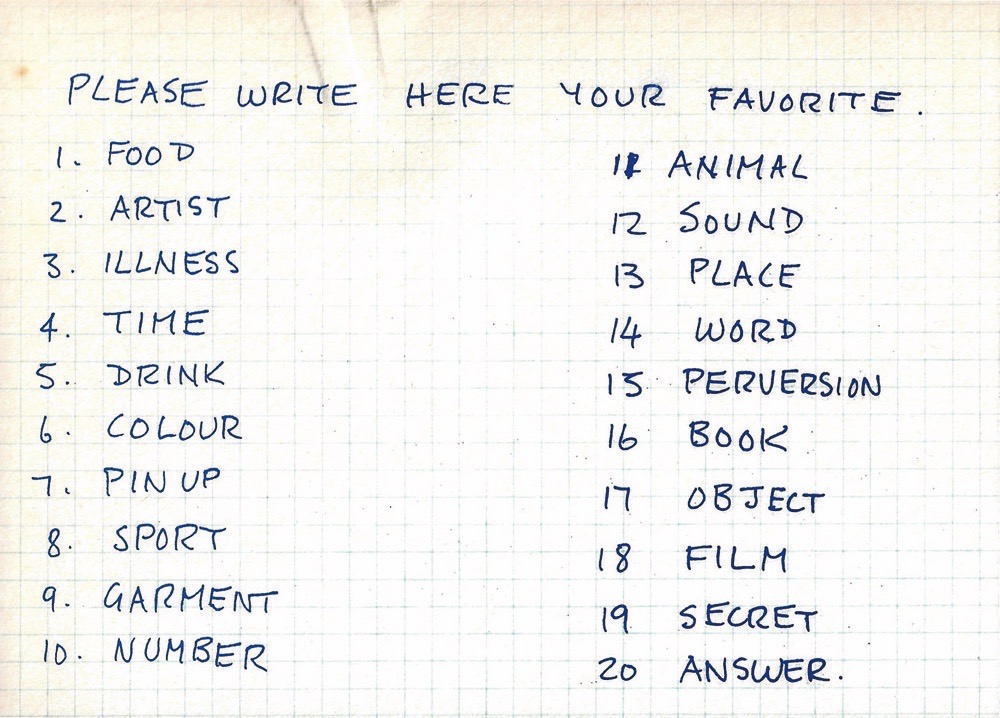 PLEASE WRITE HERE YOUR FAVORITE.
1. FOOD
2. ARTIST
3. ILLNESS
4. TIME
5. DRINK
6. COLOUR
7. PIN UP
8. SPORT
9. GARMENT
10. NUMBER
11 ANIMAL
12 SOUND
13 PLACE
14 WORD
15 PERVERSION
16 BOOK
17 OBJECT
18 FILM
19 SECRET
20 ANSWER.